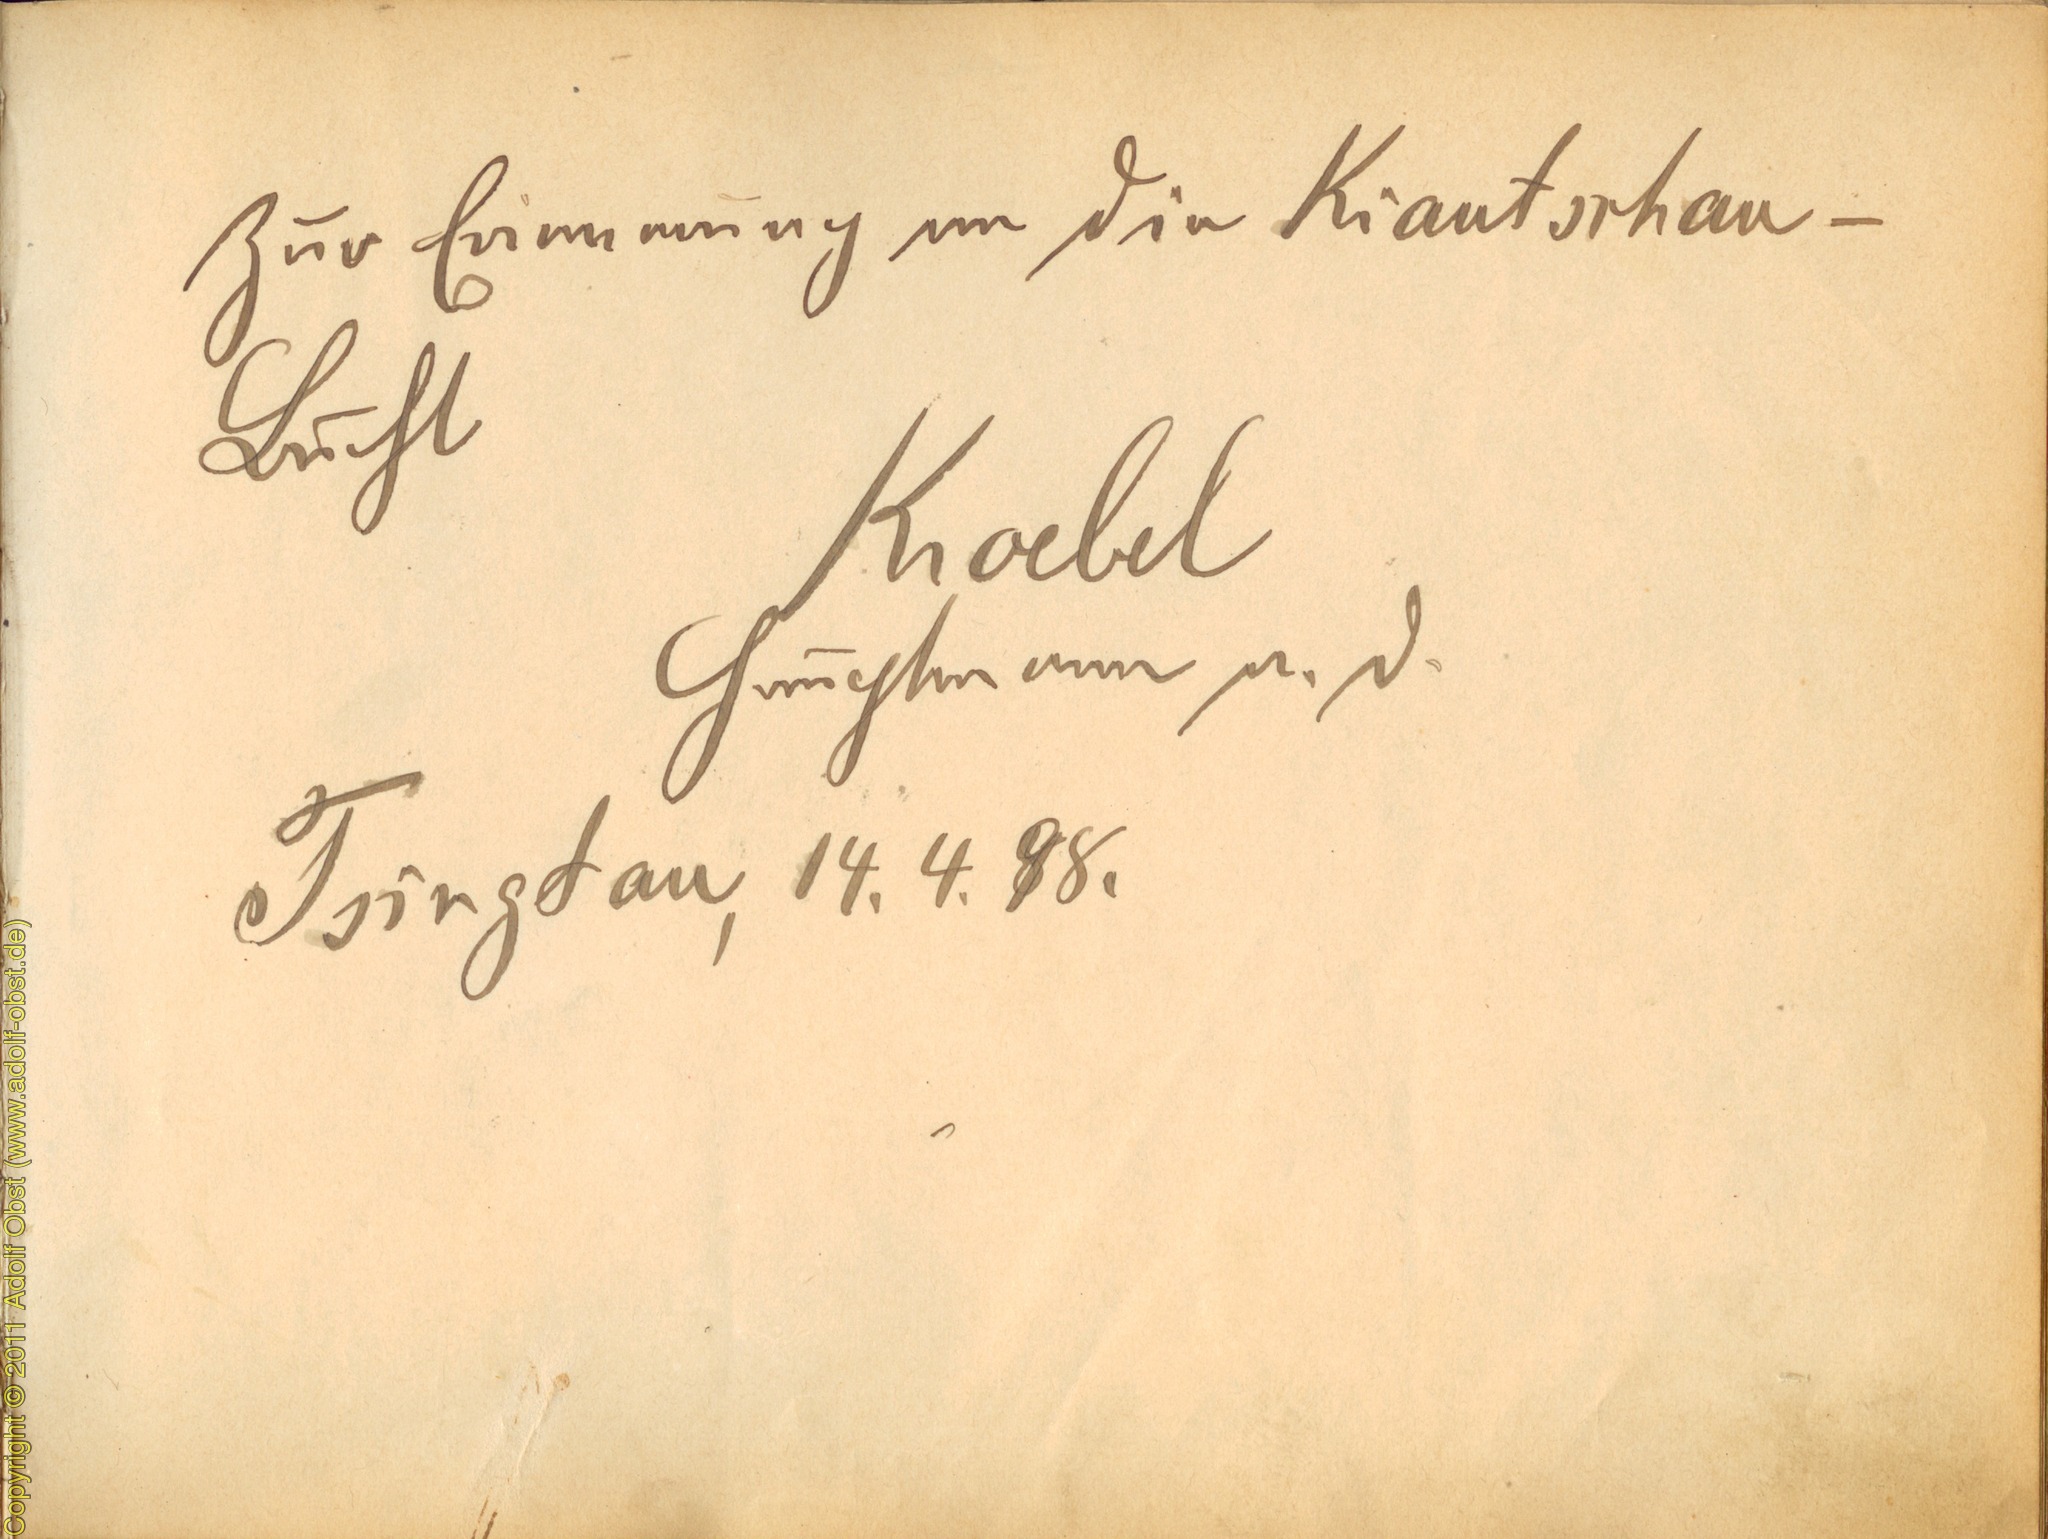 Zur Erinnerung an die Kiautschau-
Bucht
Kroebel
Hauptmann a. D.
Tsingtau, 14. 4. 98.
Copyright © 2011 Adolf Obst (www.adolf-obst.de)